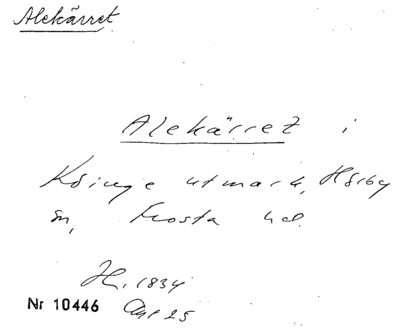 Alekärret
Alekärret i
Köinge utmark, Hörby
sn, Frosta hd.
H. 1834
Nr 10446 Akt 25